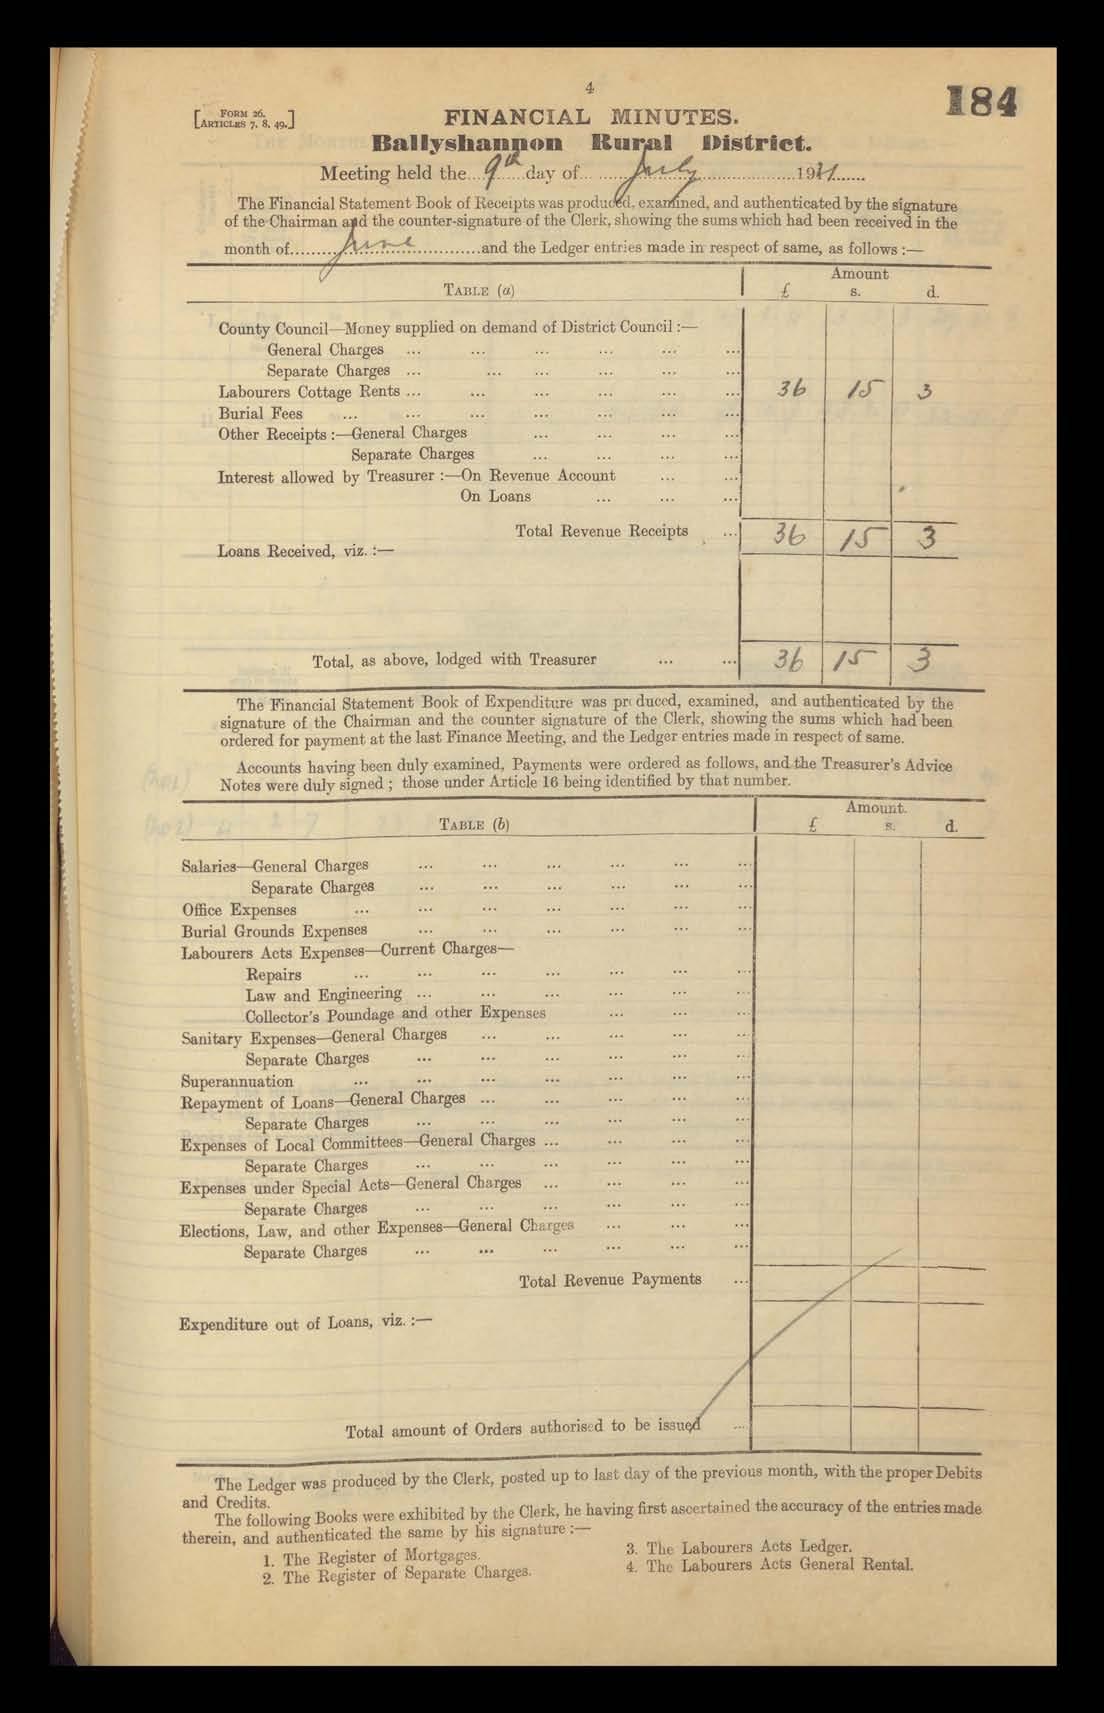 4
184
[FORM 26. ARTICLES 7, 8, 49.]
FINANCIAL MINUTES.
Ballyshannon Rural District.
Meeting held the 9th day of July 1921
The Financial Statement Book of Receipts was produced, examined, and authenticated by the signature
of the Chairman and the counter-signature of the Clerk, showing the sums which had been received in the
month of June and the Ledger entries made in respect of same, as follows :—
TABLE (a) Amount £ s. d.
County Council—Money supplied on demand of District Council :—
General Charges ... ... ... ... ... ...
Separate Charges ... ... ... ... ... ...
Labourers Cottage Rents ... ... ... ... ... ... 36 15 3
Burial Fees ... ... ... ... ... ... ...
Other Receipts :—General Charges ... ... ... ...
Separate Charges ... ... ... ...
Interest allowed by Treasurer :—On Revenue Account ... ...
On Loans ... ... ...
Total Revenue Receipts ... 36 15 3
Loans Received, viz. :—
Total, as above, lodged with Treasurer ... ... 36 15 3
The Financial Statement Book of Expenditure was produced, examined, and authenticated by the
signature of the Chairman and the counter signature of the Clerk, showing the sums which had been
ordered for payment at the last Finance Meeting, and the Ledger entries made in respect of same.
Accounts having been duly examined, Payments were ordered as follows, and the Treasurer's Advice
Notes were duly signed ; those under Article 16 being identified by that number.
TABLE (b) Amount. £ s. d.
Salaries—General Charges ... ... ... ... ... ...
Separate Charges ... ... ... ... ... ...
Office Expenses ... ... ... ... ... ... ...
Burial Grounds Expenses ... ... ... ... ... ...
Labourers Acts Expenses—Current Charges—
Repairs ... ... ... ... ... ... ...
Law and Engineering ... ... ... ... ... ...
Collector's Poundage and other Expenses ... ... ...
Sanitary Expenses—General Charges ... ... ... ... ...
Separate Charges ... ... ... ... ... ...
Superannuation ... ... ... ... ... ... ...
Repayment of Loans—General Charges ... ... ... ... ...
Separate Charges ... ... ... ... ... ...
Expenses of Local Committees—General Charges ... ... ... ...
Separate Charges ... ... ... ... ... ...
Expenses under Special Acts—General Charges ... ... ... ...
Separate Charges ... ... ... ... ... ...
Elections, Law, and other Expenses—General Charges ... ... ...
Separate Charges ... ... ... ... ... ...
Total Revenue Payments ...
Expenditure out of Loans, viz. :—
Total amount of Orders authorised to be issued ...
The Ledger was produced by the Clerk, posted up to last day of the previous month, with the proper Debits
and Credits.
The following Books were exhibited by the Clerk, he having first ascertained the accuracy of the entries made
therein, and authenticated the same by his signature :—
1. The Register of Mortgages.
2. The Register of Separate Charges.
3. The Labourers Acts Ledger.
4. The Labourers Acts General Rental.